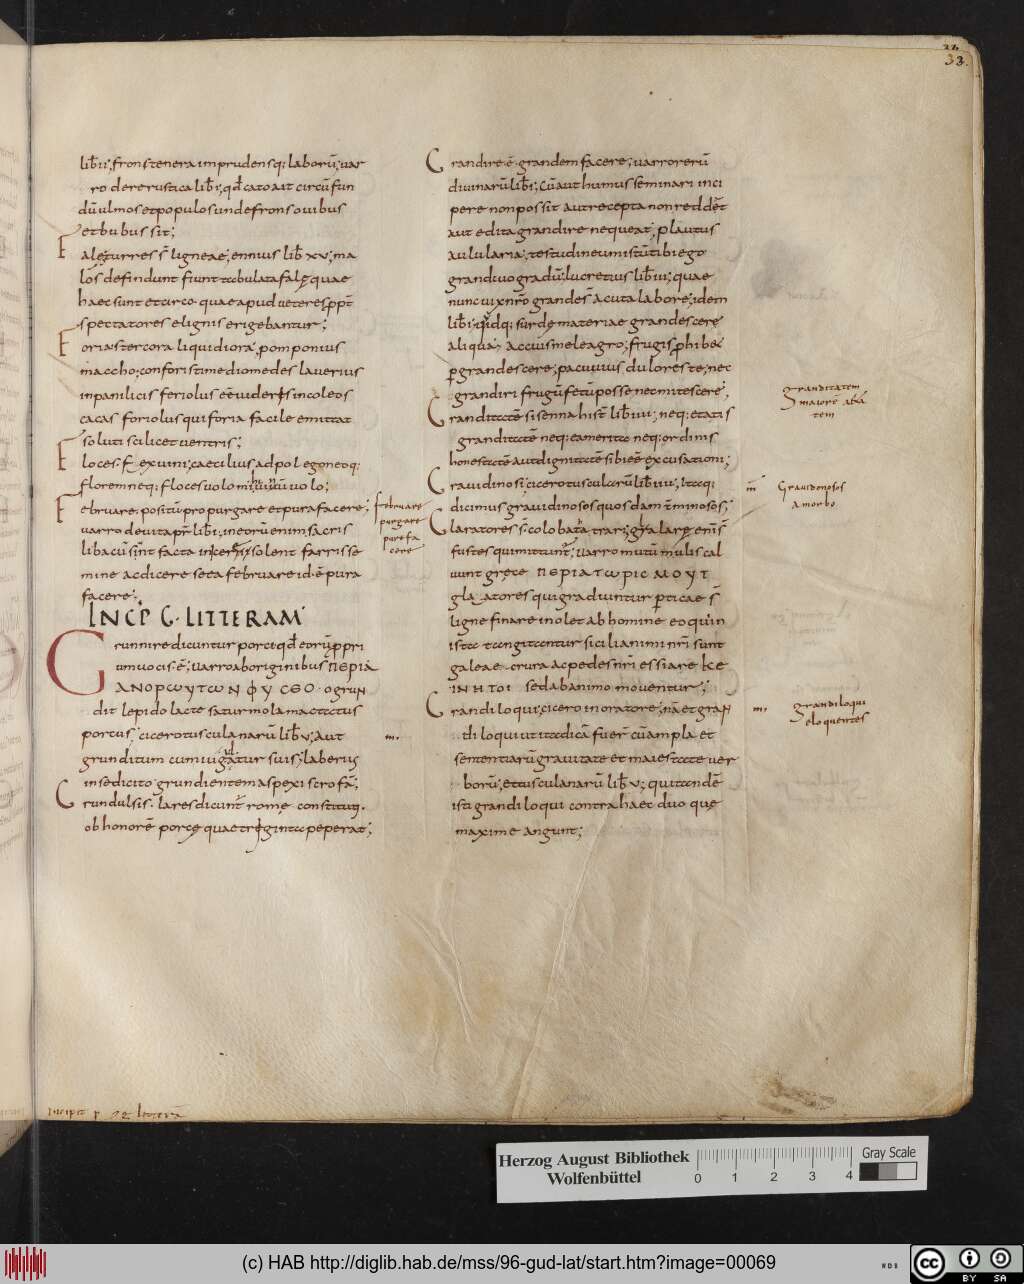 33.
lib̅ ii; frons tenera imprudensq; laborū; var
ro dere rustica lib̅ i; qd̅ cato ait circū fun
dū ulmos et populos unde frons ovibus
et bubus sit;
Falę turres s̅ ligneae; ennius lib̅ xv; ma
los defindunt fiunt tabulata falę quae
haec sunt et circo quae apud veteres ppt̅
spectatores e lignis erigebantur;
Foria stercora liquidiora; pomponius
maccho; conforisti me diomedes laverius
in panilicis foriolus
cacas foriolus qui foria facile emittat
soluti scilicet ventris;
Floces fex vini; caecilius ad pol ego neq;
florem neq; floces volo mihi vinū volo;
Februare positū pro purgare et pura facere;
varro de vita pr̅ lib̅ i; in eorū enim sacris
liba cū sint facta solent farris se
mine ac dicere se ea februare id ē pura
facere;
februare
purgare
pure fa
cere
INCP̅ G. LITTERAM
Grunnire dicuntur porci qd̅ eorū ppri
um vocis ē; varro aboriginibus ΠΕΡΙΑ
ΑΝΟΡωΥΤωΝ ΦΥϹΕΟ ogrun
dit lepido lacte satur mola mactatus
porcus; cicero tusculanarū lib̅ v; aut
m.
grunditum cum suis; laberius
in sedicito grundientem aspexi scrofā;
Grundulsis lares dicunt romę constituti
ob honorē porcę quae triginta peperat;
Grandire ē grandem facere; varro rerū
divinarū lib̅ i; cū aut humus semina ri inci
pere non possit aut recepta non reddēt
aut edita grandire nequeat; plautus
aulularia; testudineum istū tibi ego
grandivo gradū; lucretius lib̅ ii; quae
nunc vix nr̅o grandes acuta labore; idem
lib̅ i; quidq; surdę materiae grandescerę
aliqua; accius meleagro; frugis phibec
p grandescere; pacuuius dulores te; nec
grandiri frugū fetū posse nec mitescere;
Granditatē sisenna hist̅ lib̅ iiii; neq; etatis
granditatē neq; eaneritā neq; ordinis
honestatē aut dignitatē sibi eē excusationi;
granditatem
maiorē aeta
tem
Gravidinosi; cicero tusculārū lib̅ iiii; itaq;
dicimus gravidinosos quosdam t̅minosos;
m̅
Gravidinosos
a morbo
Glaratores s̅ colobatrarii;
fustes qui mittunt; varro mutū mulis cal
vunt gręce ΠΕΡΙΑΤωΡΙϹ ΜΟΥΤ
gla atores qui gradiuntur p̅ticae s̅
lignę finare in olet ab homine eo qui in
istac tangitantur sic il animi nr̅i sunt
galeae crura ac pedes nr̅i essiare ΚΕ
ΙΝΗΤΟΙ sed ab animo moventur;
Grandiloqui; cicero in oratore; nā et gran
m.
grandiloqui
eloquentes
diloqui ut ita dicā fuer̅ cū ampla et
sententiarū gravitate et maiestate ver
borū; et tusculanarū lib̅ v; qui tandē
isti grandiloqui contra haec duo quę
maxime angunt;
Incipit p g litterā
Herzog August Bibliothek
Wolfenbüttel
0 1 2 3 4
Gray Scale
(c) HAB http://diglib.hab.de/mss/96-gud-lat/start.htm?image=00069
WDB
cc BY SA